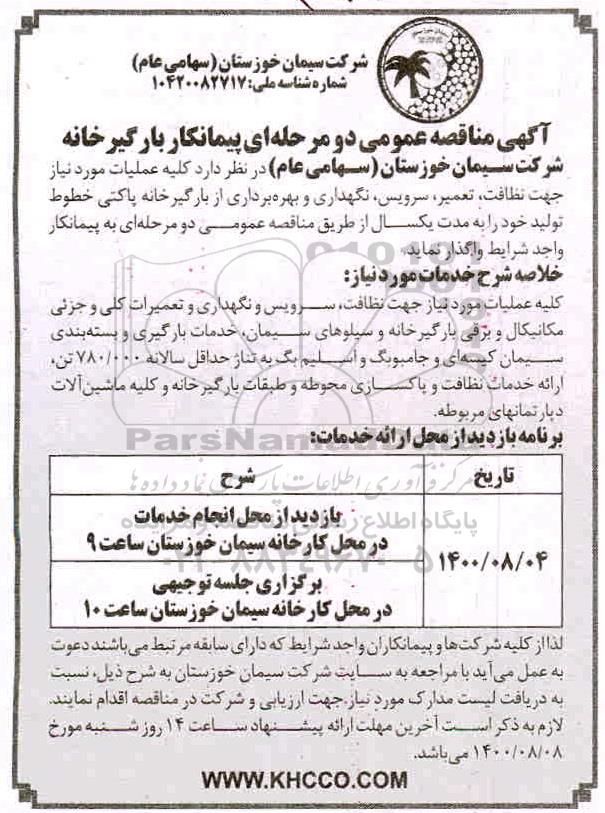 شرکت سیمان خوزستان (سهامی عام)
شماره شناسه ملی: ۱۰۴۲۰۰۸۲۷۱۷
آگهی مناقصه عمومی دو مرحله‌ای پیمانکار بارگیرخانه
شرکت سیمان خوزستان (سهامی عام) در نظر دارد کلیه عملیات مورد نیاز
جهت نظافت، تعمیر، سرویس، نگهداری و بهره‌برداری از بارگیرخانه پاکتی خطوط
تولید خود را به مدت یکسال از طریق مناقصه عمومی دو مرحله‌ای به پیمانکار
واجد شرایط واگذار نماید.
خلاصه شرح خدمات مورد نیاز:
کلیه عملیات مورد نیاز جهت نظافت، سرویس و نگهداری و تعمیرات کلی و جزئی
مکانیکال و برقی بارگیرخانه و سیلوهای سیمان، خدمات بارگیری و بسته‌بندی
سیمان کیسه‌ای و جامبوبگ و اسلیم بگ به تناژ حداقل سالانه ۷۸۰/۰۰۰ تن،
ارائه خدمات نظافت و پاکسازی محوطه و طبقات بارگیرخانه و کلیه ماشین‌آلات
دپارتمانهای مربوطه.
برنامه بازدید از محل ارائه خدمات:
تاریخ
شرح
۱۴۰۰/۰۸/۰۴
بازدید از محل انجام خدمات
در محل کارخانه سیمان خوزستان ساعت ۹
برگزاری جلسه توجیهی
در محل کارخانه سیمان خوزستان ساعت ۱۰
لذا از کلیه شرکت‌ها و پیمانکاران واجد شرایط که دارای سابقه مرتبط می‌باشند دعوت
به عمل می‌آید با مراجعه به سایت شرکت سیمان خوزستان به شرح ذیل، نسبت
به دریافت لیست مدارک مورد نیاز جهت ارزیابی و شرکت در مناقصه اقدام نمایند.
لازم به ذکر است آخرین مهلت ارائه پیشنهاد ساعت ۱۴ روز شنبه مورخ
۱۴۰۰/۰۸/۰۸ می‌باشد.
WWW.KHCCO.COM
ParsNamadData
مرکز فرآوری اطلاعات پارس نماد داده‌ها